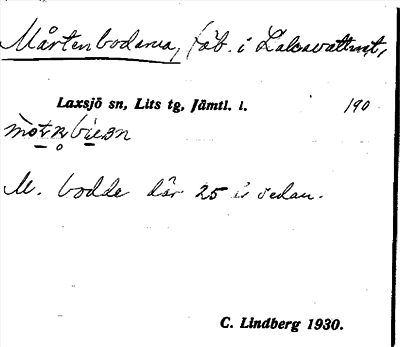 Mårtenbodarna, fäb. i Laxsvattnet,
Laxsjö sn, Lits tg, Jämtl. l. 190
M. bodde där 25 år sedan.
C. Lindberg 1930.